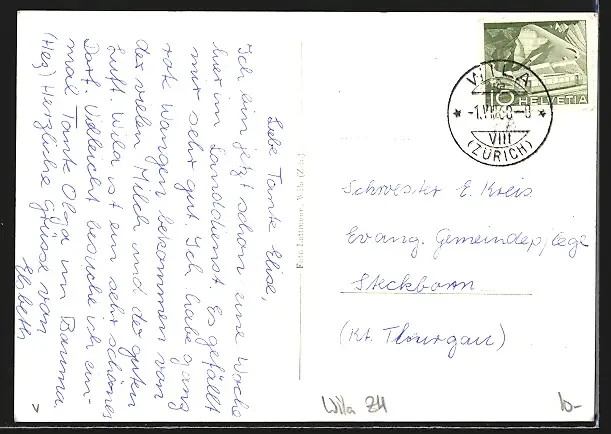 Liebe Tante Elise,
Ich bin jetzt schon eine Woche
hier im Landdienst. Es gefällt
mir sehr gut. Ich habe ganz
rote Wangen bekommen von
der vielen Milch und der guten
Luft. Wila ist ein sehr schönes
Dorf. Vielleicht besuche ich ein-
mal Tante Olga im Bauma.
(Heg) Herzliche Grüsse von
Elsbeth
Foto Lattmann, Wila (Zürich)
WILA
-1.VII.60-8
VIII
(ZÜRICH)
10 HELVETIA
Schwester E. Kreis
Evang. Gemeindepflege
Steckborn
(Kt. Thurgau)
Wila ZH
10-
v